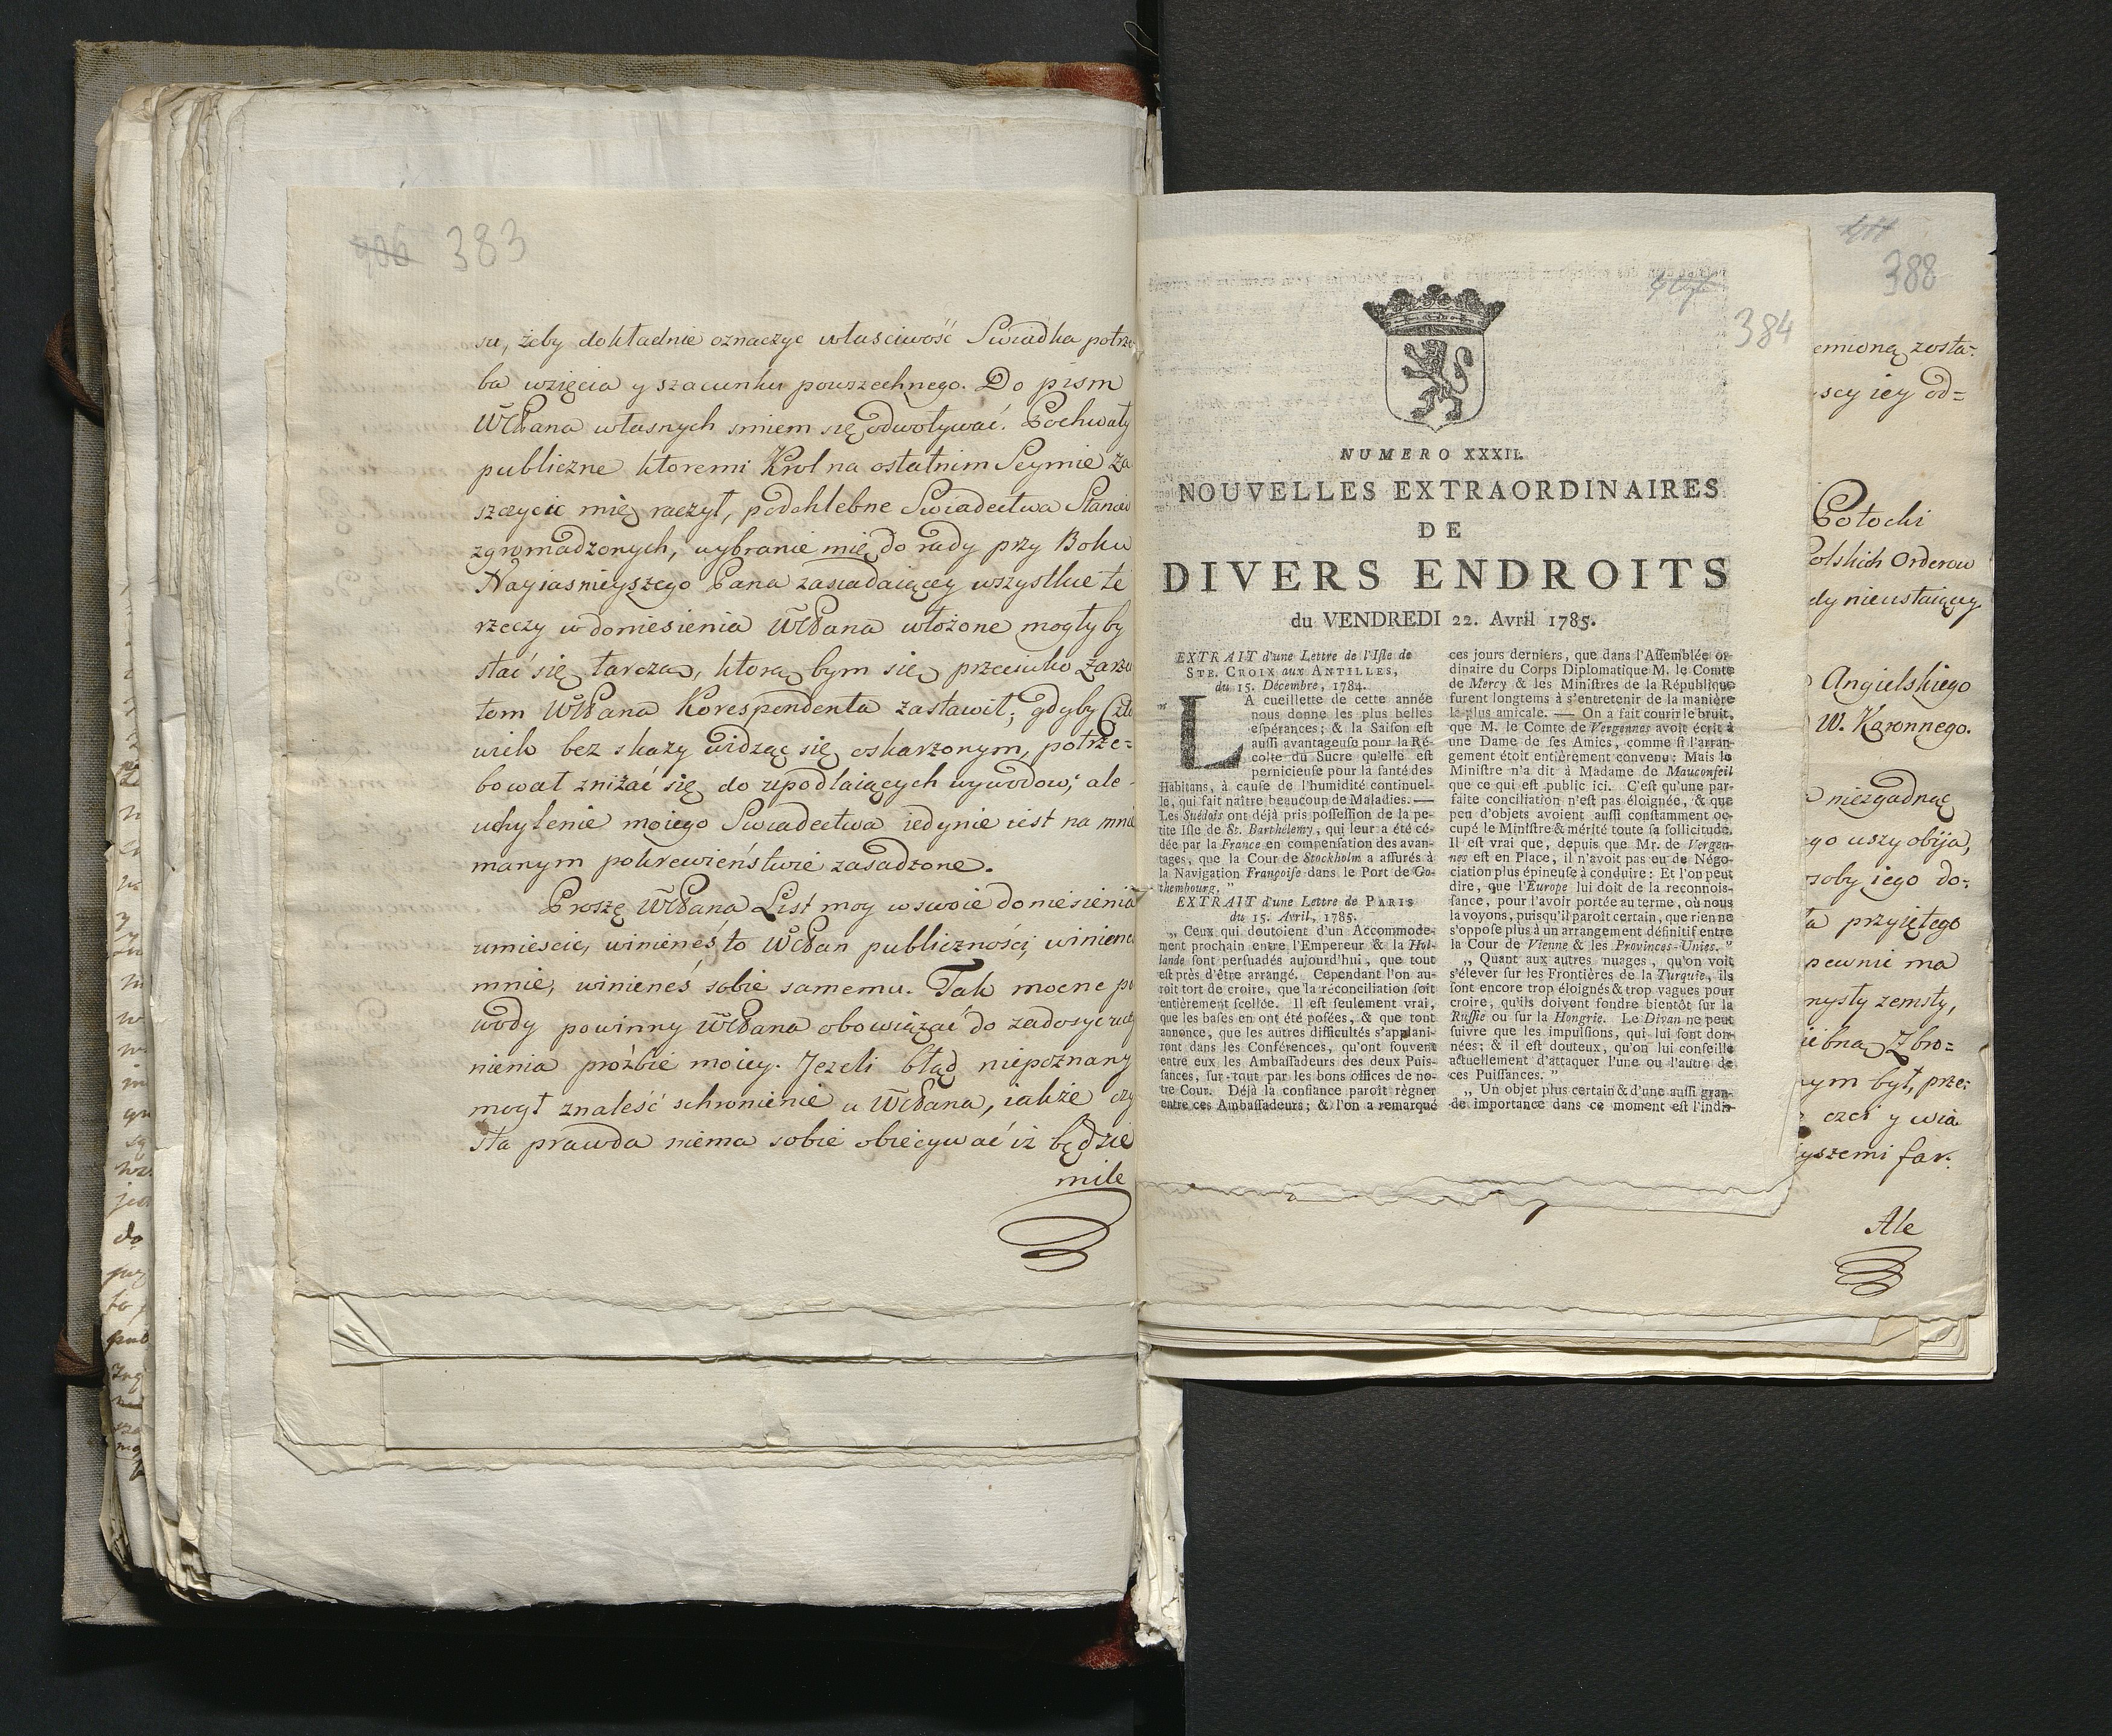 406 383
su, żeby dokładnie oznaczyc własciwość Swiadka potrze
ba wzięcia y szacunku powszechnego. Do pism
WCPana własnych smiem się odwoływać. Pochwały
publiczne ktoremi Krol na ostatnim Seymie za
szczycic mię raczył, podchlebne Swiadectwa Stanow
zgromadzonych, wybranie mię do rady przy Boku
Nayiasnieyszego Pana zasiadaiącey wszystkie te
rzeczy w doniesienia WCPana włożone mogłyby
stać się tarczą, ktorą bym się przeciwko Zarzu
tom WCPana Korespondenta zastawił; gdyby Czło
wiek bez skazy widząc się oskarzonym, potrze=
bował zniżać się do upodlaiących wywodow; ale
uchylenie moiego Swiadectwa iedynie iest na mnie
manym pokrewieństwie zasadzone.
Proszę WCPana List moy w swoie doniesienia
umiescic, winieneś to WCPan publiczności, winiene
mnie, winieneś sobie samemu. Tak mocne po
wody powinny WCPana obowiązać do zadosyc ucz
nienia proźbie moiey. Jezeli błąd niepoznany
mogł znaleść schronienie u WCPana, iakże czy
sta prawda niema sobie obiecywać iż będzie
mile
384
NUMERO XXXII.
NOUVELLES EXTRAORDINAIRES
DE
DIVERS ENDROITS
du VENDREDI 22. Avril 1785.
EXTRAIT d'une Lettre de l'Isle de
STE. CROIX aux ANTILLES,
du 15. Décembre, 1784.
„ LA cueillette de cette année
nous donne les plus belles
espérances; & la Saison est
aussi avantageuse pour la Ré-
colte du Sucre qu'elle est
pernicieuse pour la santé des
Habitans, à cause de l'humidité continuel-
le, qui fait naître beaucoup de Maladies. —
Les Suédois ont déjà pris possession de la pe-
tite Isle de St. Barthélemy, qui leur a été cé-
dée par la France en compensation des avan-
tages, que la Cour de Stockholm a assurés à
la Navigation Françoise dans le Port de Go-
thembourg. "
EXTRAIT d'une Lettre de PARIS
du 15. Avril, 1785.
„ Ceux qui doutoient d'un Accommode-
ment prochain entre l'Empereur & la Hol-
lande sont persuadés aujourd'hui, que tout
est près d'être arrangé. Cependant l'on au-
roit tort de croire, que la réconciliation soit
entièrement scellée. Il est seulement vrai,
que les bases en ont été posées, & que tout
annonce, que les autres difficultés s'applani-
ront dans les Conférences, qu'ont souvent
entre eux les Ambassadeurs des deux Puis-
sances, sur-tout par les bons offices de no-
tre Cour. Déjà la confiance paroît régner
entre ces Ambassadeurs; & l'on a remarqué
ces jours derniers, que dans l'Assemblée or-
dinaire du Corps Diplomatique M. le Comte
de Mercy & les Ministres de la République
furent longtems à s'entretenir de la manière
le plus amicale. — On a fait courir le bruit,
que M. le Comte de Vergennes avoit écrit à
une Dame de ses Amies, comme si l'arran-
gement étoit entièrement convenu: Mais le
Ministre n'a dit à Madame de Mauconseil
que ce qui est public ici. C'est qu'une par-
faite conciliation n'est pas éloignée, & que
peu d'objets avoient aussi constamment oc-
cupé le Ministre & mérité toute sa sollicitude.
Il est vrai que, depuis que Mr. de Vergen-
nes est en Place, il n'avoit pas eu de Négo-
ciation plus épineuse à conduire: Et l'on peut
dire, que l'Europe lui doit de la reconnois-
sance, pour l'avoir portée au terme, où nous
la voyons, puisqu'il paroît certain, que rien ne
s'oppose plus à un arrangement définitif entre
la Cour de Vienne & les Provinces-Unies. "
„ Quant aux autres nuages, qu'on voit
s'élever sur les Frontières de la Turquie, ils
sont encore trop éloignés & trop vagues pour
croire, qu'ils doivent fondre bientôt sur la
Russie ou sur la Hongrie. Le Divan ne peut
suivre que les impulsions, qui lui sont don-
nées; & il est douteux, qu'on lui conseille
actuellement d'attaquer l'une ou l'autre de
ces Puissances. "
„ Un objet plus certain & d'une aussi gran-
de importance dans ce moment est l'indis-
388
emioną zosta=
scy iey od=
Potocki
Polskich Orderow
dy nieustaiący
Angielskiego
W. Koronnego.
niezgadną
go uszy obija,
soby iego do=
ta przyiętego
pewnie ma
mysty zemsty,
iebną Zbro=
ym był, prze=
czci y wia
yszemi far.
Ale